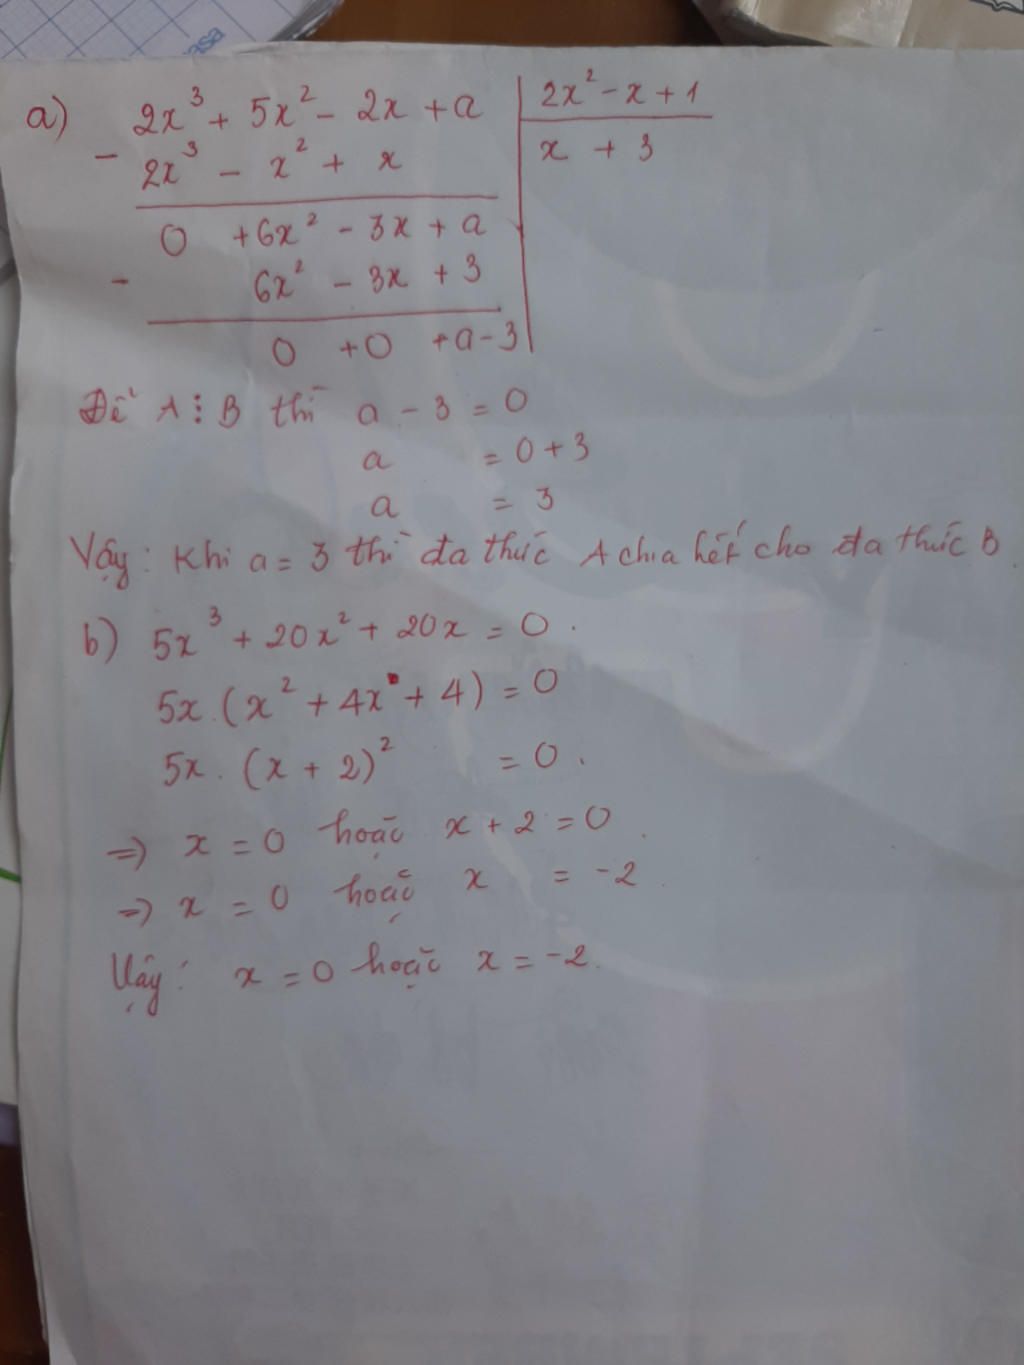 asa
a) 2x³ + 5x² - 2x + a | 2x² - x + 1
- 2x³ - x² + x | x + 3
0 + 6x² - 3x + a
- 6x² - 3x + 3
0 + 0 + a - 3
Để A ⋮ B thì a - 3 = 0
a = 0 + 3
a = 3
Vậy: Khi a = 3 thì đa thức A chia hết cho đa thức B
b) 5x³ + 20x² + 20x = 0.
5x.(x² + 4x + 4) = 0
5x.(x + 2)² = 0.
=> x = 0 hoặc x + 2 = 0.
=> x = 0 hoặc x = -2.
Vậy: x = 0 hoặc x = -2.